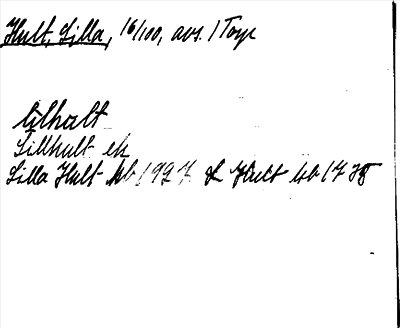 Hult, Lilla, 16/100, avs. 1 Torp
lilhult
Lillhult ek
Lilla Hult kb 1927 L Hult hb 17